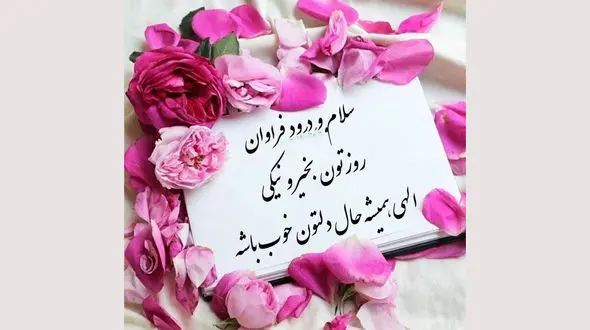 سلام و درود فراوان
روزتون بخیر و نیکی
الهی همیشه حال دلتون خوب باشه